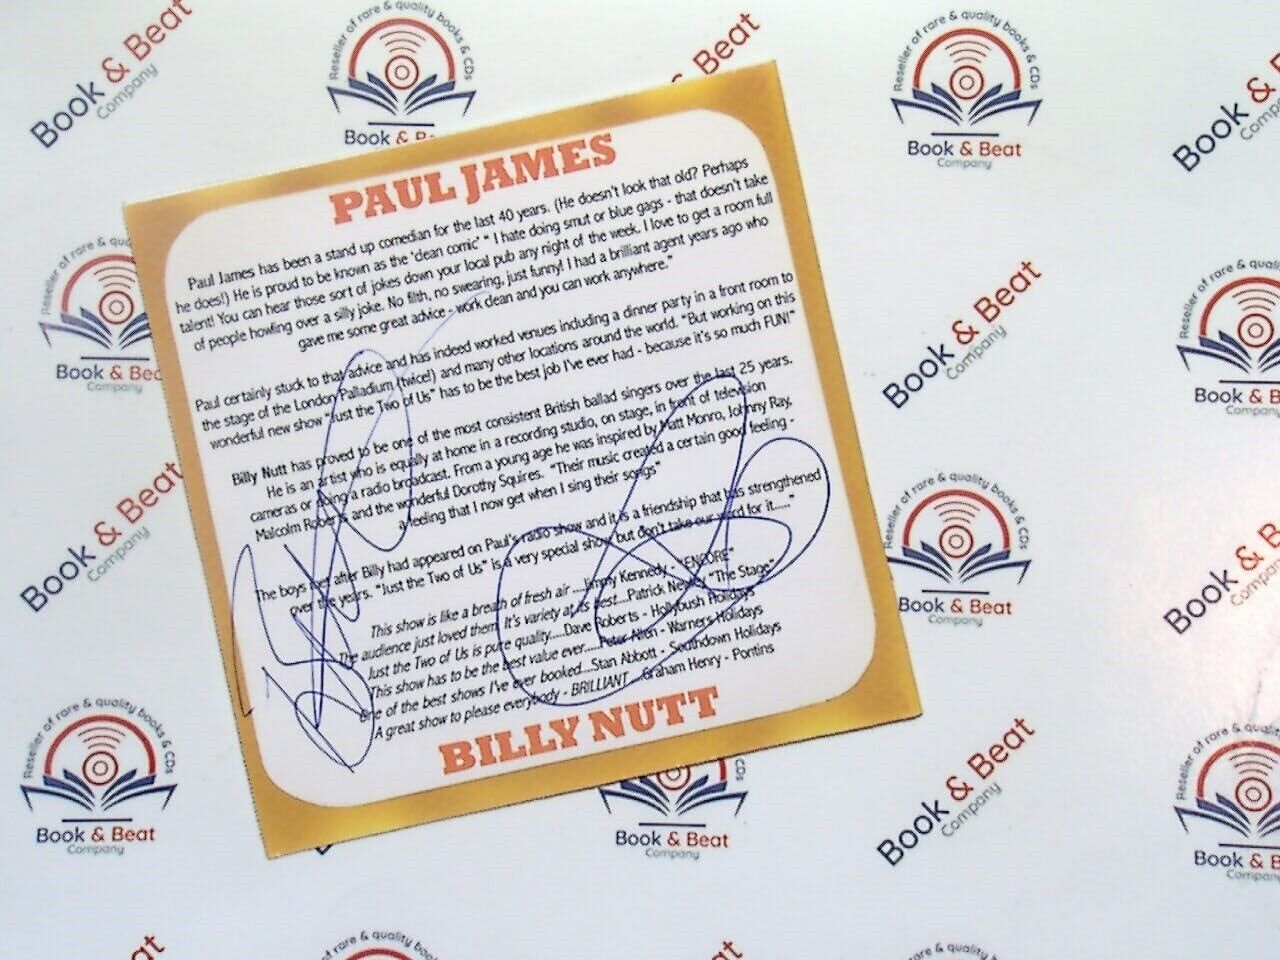 PAUL JAMES
Paul James has been a stand up comedian for the last 40 years. (He doesn't look that old? Perhaps
he does!) He is proud to be known as the 'clean comic' " I hate doing smut or blue gags - that doesn't take
talent! You can hear those sort of jokes down your local pub any night of the week. I love to get a room full
of people howling over a silly joke. No filth, no swearing, just funny! I had a brilliant agent years ago who
gave me some great advice - work clean and you can work anywhere."
Paul certainly stuck to that advice and has indeed worked venues including a dinner party in a front room to
the stage of the London Palladium (twice!) and many other locations around the world. "But working on this
wonderful new show "Just the Two of Us" has to be the best job I've ever had - because it's so much FUN!"
Billy Nutt has proved to be one of the most consistent British ballad singers over the last 25 years.
He is an artist who is equally at home in a recording studio, on stage, in front of television
cameras or doing a radio broadcast. From a young age he was inspired by Matt Monro, Johnny Ray,
Malcolm Roberts and the wonderful Dorothy Squires. "Their music created a certain good feeling -
a feeling that I now get when I sing their songs"
The boys met after Billy had appeared on Paul's radio show and it is a friendship that has strengthened
over the years. "Just the Two of Us" is a very special show but don't take our word for it....."
This show is like a breath of fresh air ....Jimmy Kennedy - "ENCORE"
The audience just loved them. It's variety at its best...Patrick Newley "The Stage"
Just the Two of Us is pure quality.....Dave Roberts - Hollybush Holidays
This show has to be the best value ever.....Peter Allen - Warners Holidays
One of the best shows I've ever booked...Stan Abbott - Southdown Holidays
A great show to please everybody - BRILLIANT ...Graham Henry - Pontins
BILLY NUTT
Book & Beat
Company
Reseller of rare & quality books & CDs
Book & Beat
Company